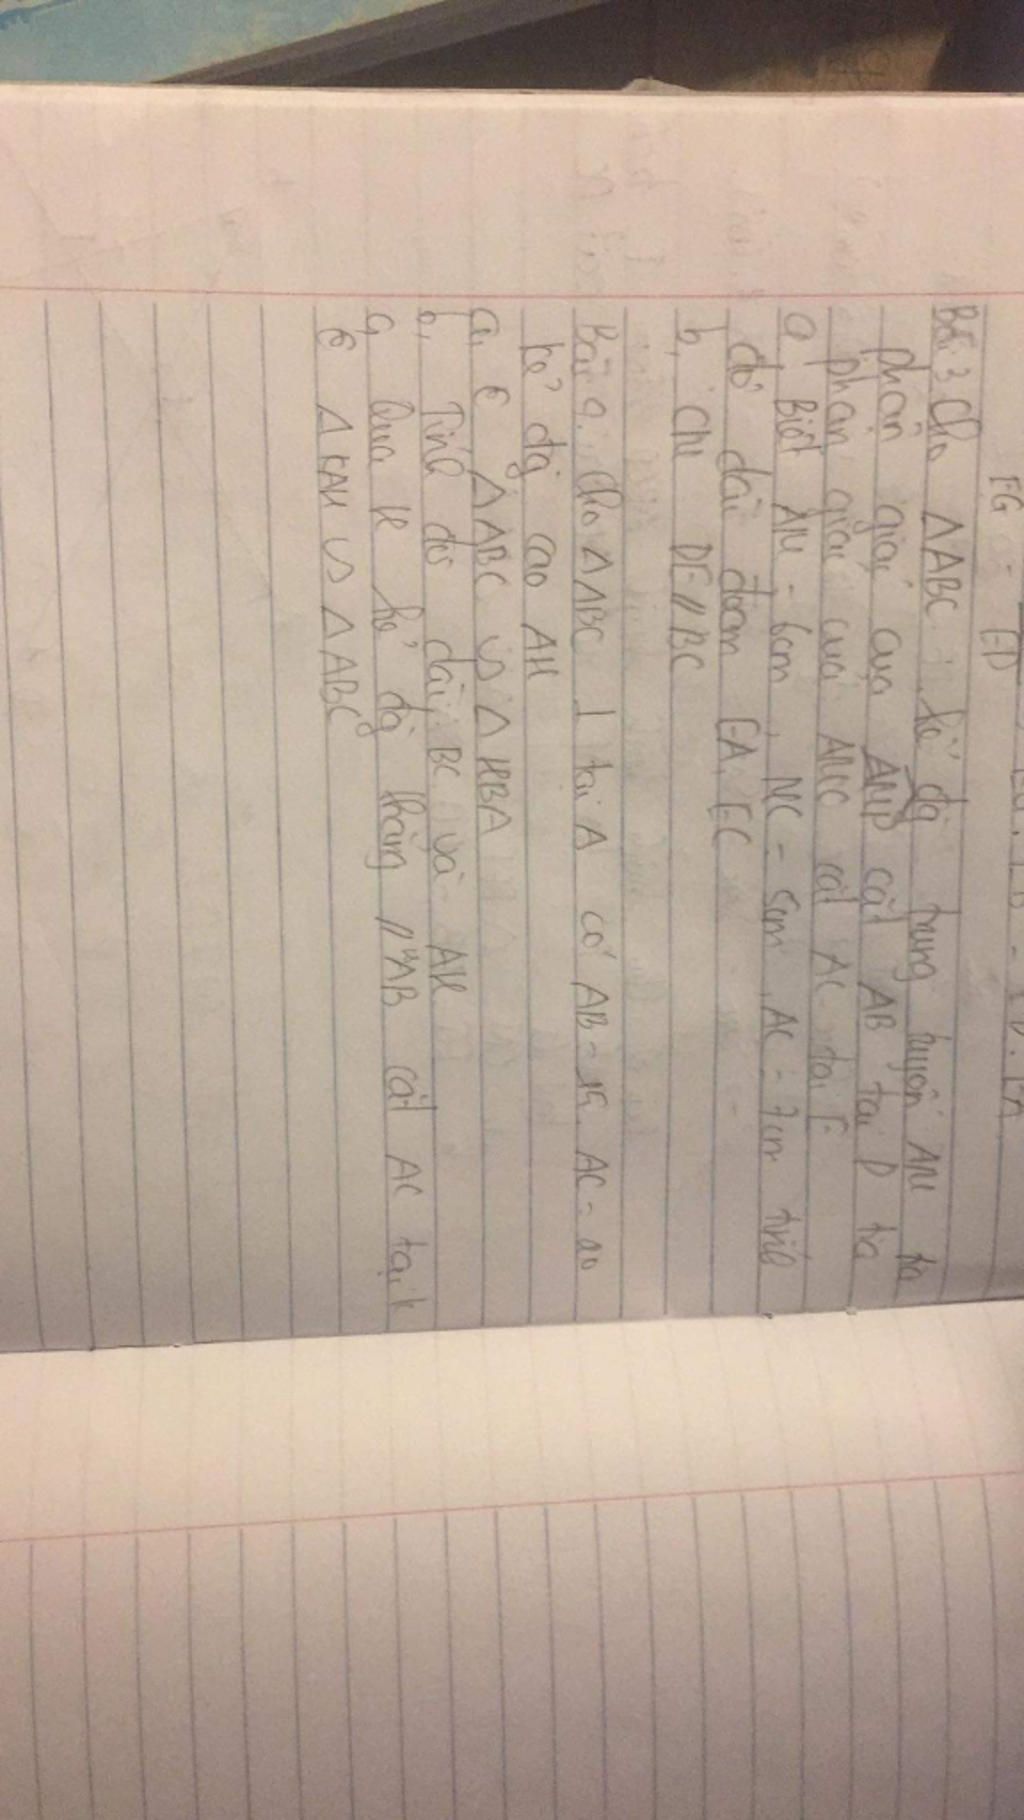 FG - ED
Bài 3 Cho ΔABC, kẻ đg trung tuyến AM tia
phân giác của AMB cắt AB tại D tia
phân giác của AMC cắt AC tại E
a, Biết AM = 6cm, MC = 5cm, AC = 7cm tính
độ dài đoạn EA, EC
b, CM DE // BC
Bài 4: cho ΔABC ⊥ tại A có AB = 15, AC = 20
kẻ đg cao AH
a, C ΔABC ∽ ΔHBA
b, Tính độ dài BC và AH
c, Qua H kẻ đg thẳng // AB cắt AC tại K
C ΔKAH ∽ ΔABC